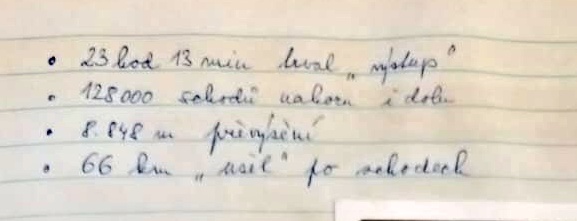 • 23 hod 13 min trval „výstup"
• 128000 schodů nahoru i dolu
• 8.848 m převýšení
• 66 km „ušel" po schodech